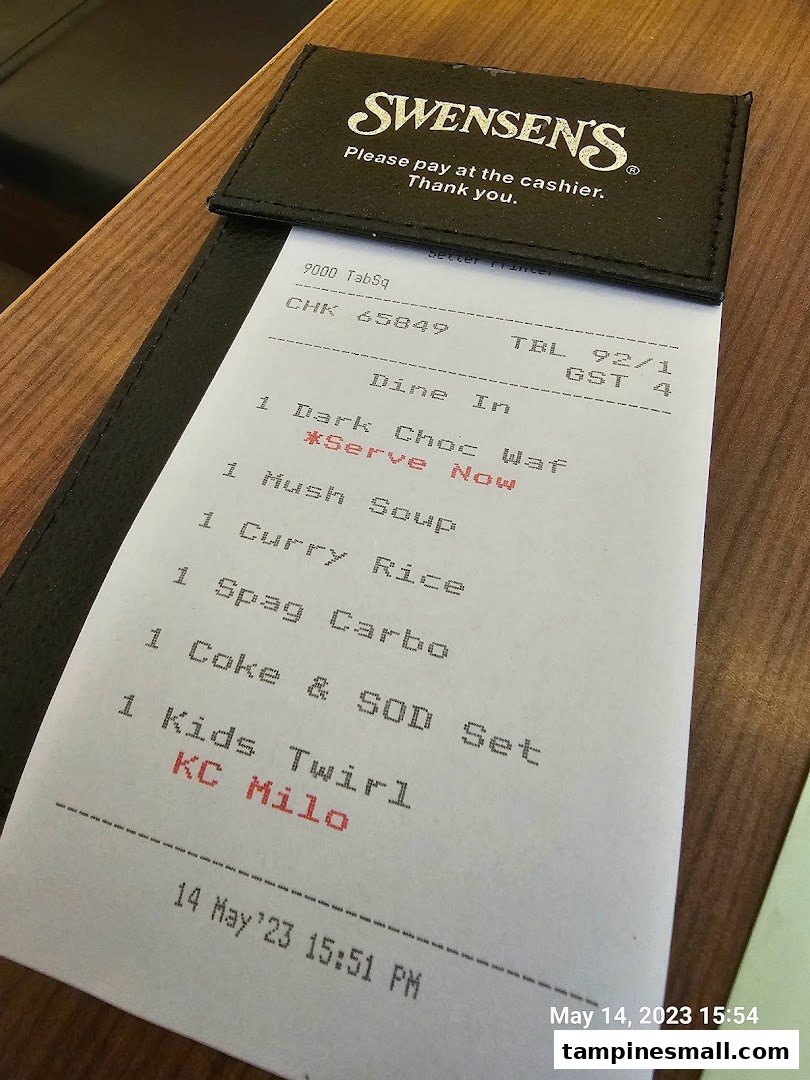 SWENSEN'S®
Please pay at the cashier.
Thank you.
Setter Printer
9000 TabSq
CHK 65849 TBL 92/1
GST 4
Dine In
1 Dark Choc Waf
*Serve Now
1 Mush Soup
1 Curry Rice
1 Spag Carbo
1 Coke & SOD Set
1 Kids Twirl
KC Milo
14 May'23 15:51 PM
May 14, 2023 15:54
tampinesmall.com